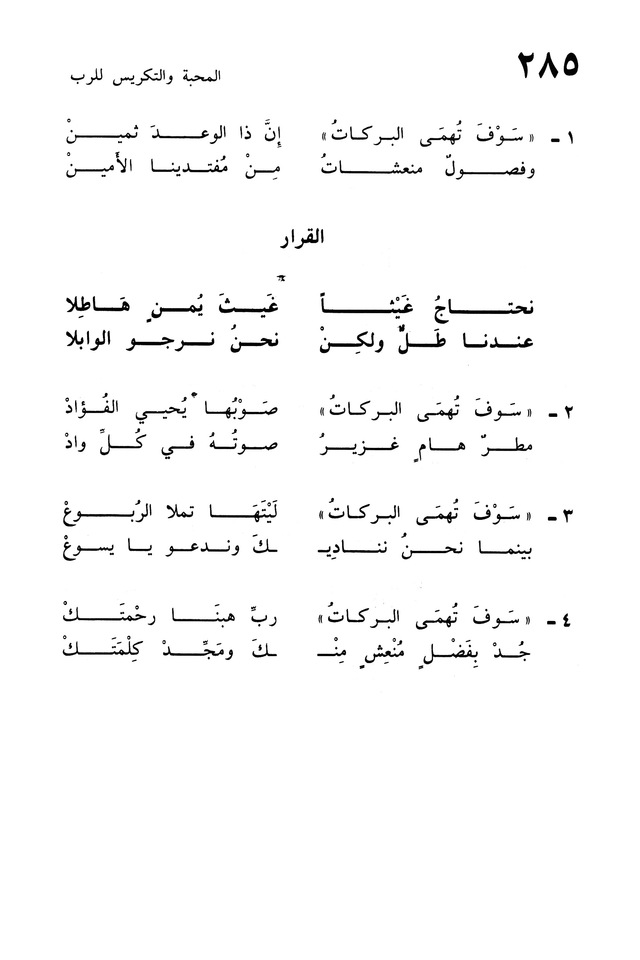 ٢٨٥
المحبة والتكريس للرب
١ ـ «سَوْفَ تُهمَى البركاتُ» إِنَّ ذا الوعدَ ثمينْ
وفصولٌ منعشاتُ مِنْ مُفتدينا الأَمينْ
القرار
نحتاجُ غَيْثاً غَيثَ يُمنٍ هَاطِلا
عندنا طَلٌّ ولكِنْ نحنُ نرجو الوابلا
٢ ـ «سَوفَ تُهمَى البركاتُ» صَوْبُها يُحيي الفُؤادْ
مطرٌ هامٍ غزيرُ صوتُهُ في كُلِّ وادْ
٣ ـ «سَوْفَ تُهمَى البركاتُ» لَيْتَهَا تملا الرُبُوعْ
بينما نحنُ ننادِيـ ـكَ وندعو يا يسوعْ
٤ ـ «سَوفَ تُهمَى البركاتُ» ربِّ هبنَا رحْمتَكْ
جُدْ بِفَضْلٍ مُنْعِشٍ مِنْـ ـكَ ومَجِّدْ كِلْمَتَكْ